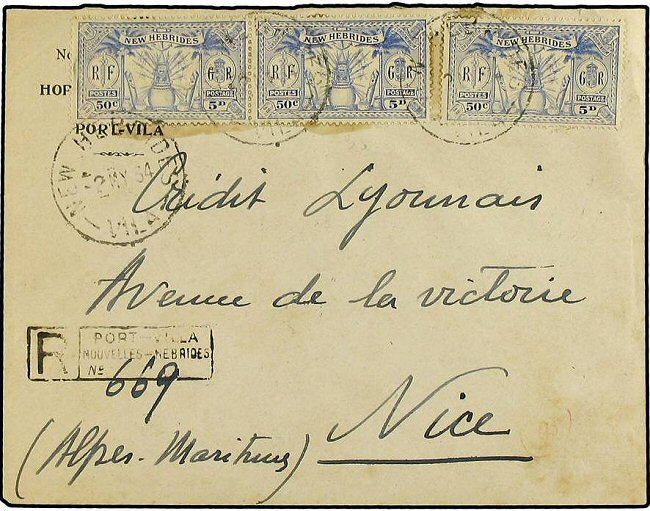 NEW HEBRIDES
RF GR
POSTES POSTAGE
50c 5D
NEW HEBRIDES
RF GR
POSTES POSTAGE
50c 5D
NEW HEBRIDES
RF GR
POSTES POSTAGE
50c 5D
HOP
PORT-VILA
NEW HEBRIDES
2 MY 34
VILA
Crédit Lyonnais
Avenue de la victoire
R PORT-VILLA
NOUVELLES-HEBRIDES
No 669
(Alpes-Maritimes)
Nice